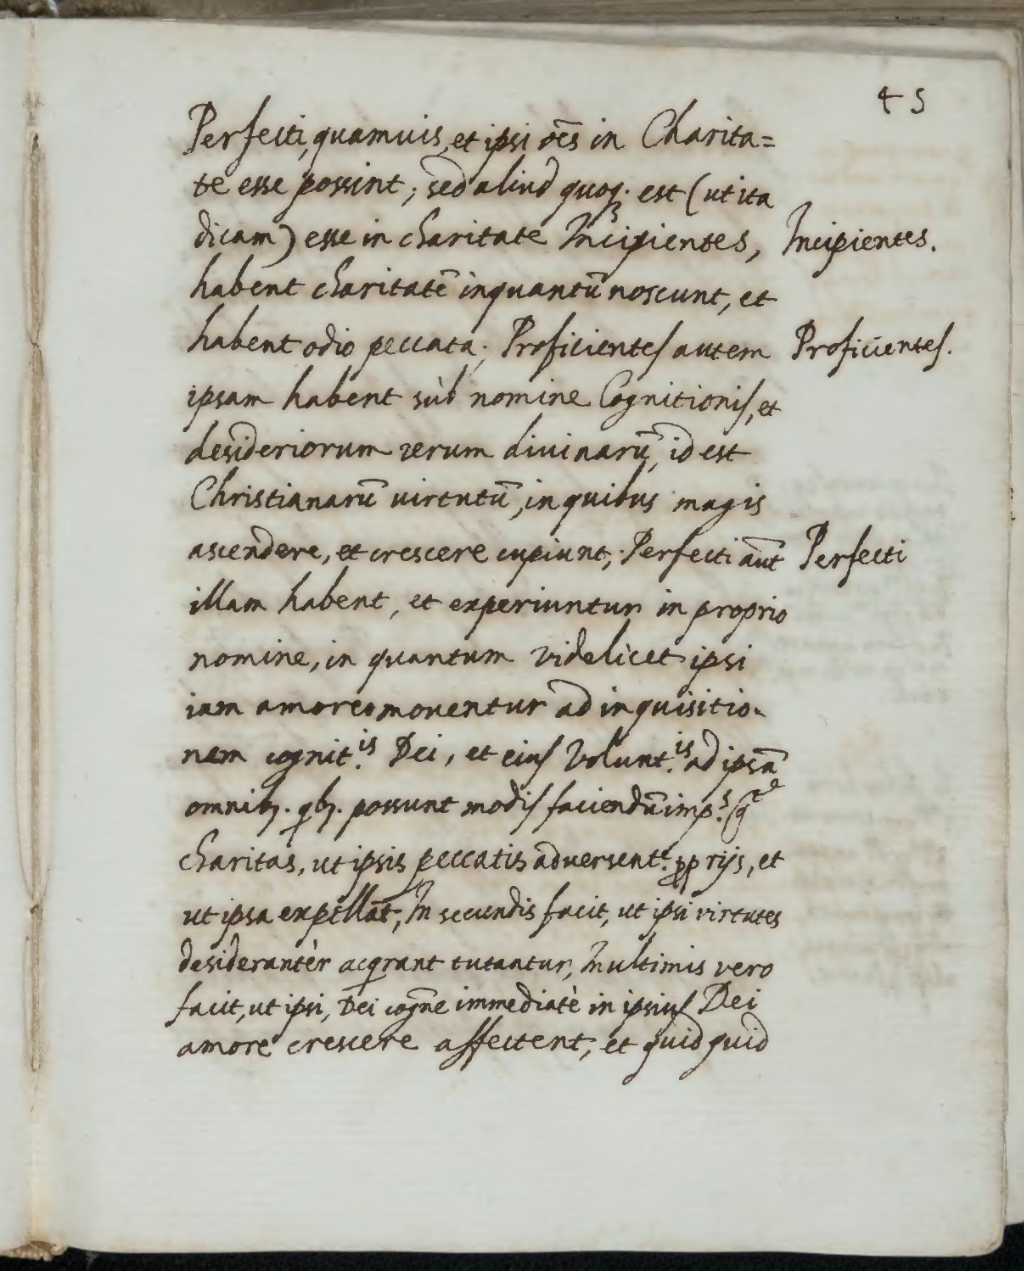 45
Perfecti, quamuis, et ipsi oēs in Charita=
te esse possint; sed aliud quoq. est (ut ita
dicam) esse in charitate Incipientes, Incipientes.
habent charitatē inquantū noscunt, et
habent odio peccata; Proficientes autem Proficientes.
ipsam habent sùb nomine Cognitionis, et
desideriorum rerum diuinarū, id est
Christianarū uirtutū, in quibus magis
ascendere, et crescere cupiunt; Perfecti aūt Perfecti
illam habent, et experiuntur in proprio
nomine, in quantum videlicet ipsi
iam amore mouentur ad inquisitio-
nem cognit.is Dei, et eius Volunt.is ad ipsā
omnib3. qb3. possunt modis faciendū imp.s
charitas, ut ipsis peccatis aduersent.r pprijs, et
ut ipsa expellāt; In secundis facit, ut ipsi virtutes
desiderantèr acqrant tutantur; In ultimis vero
facit, ut ipsi, Dei cogne immediatè in ipsius Dei
amore crescere affectent, et quid quid